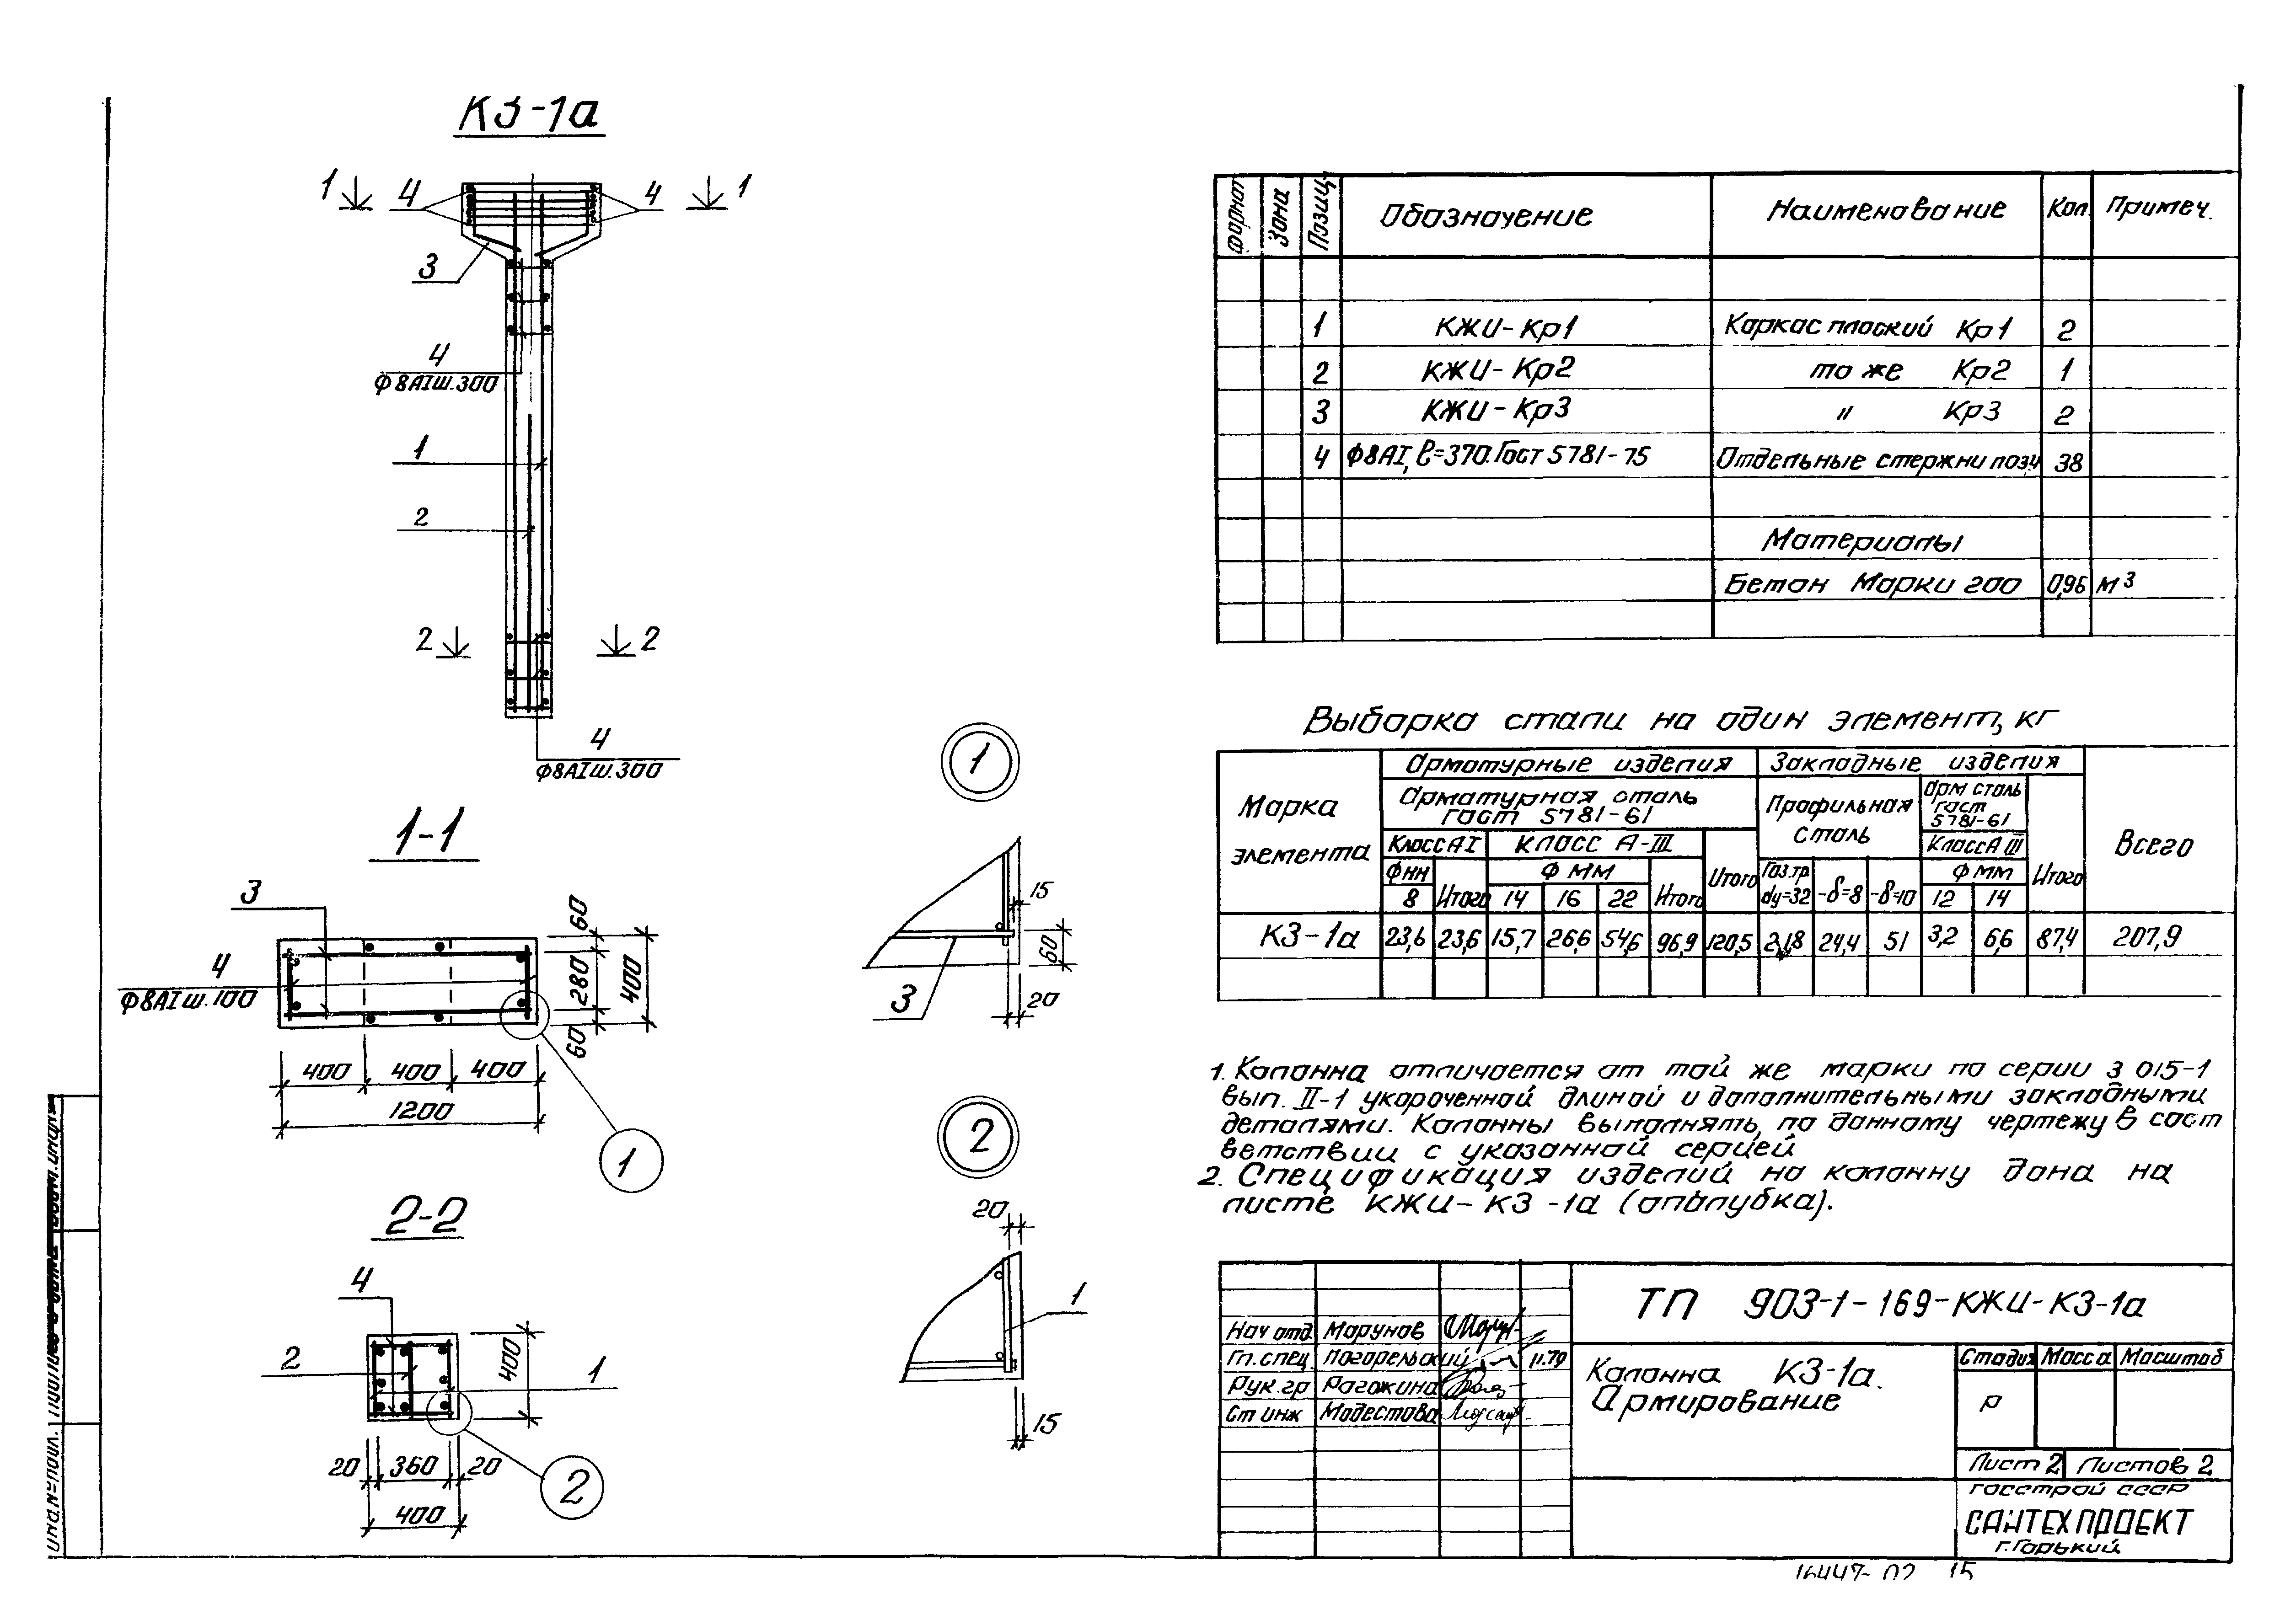 К3-1а
1 4 4 1
3
4
ф8АIш.300
1
2
2 2
4
ф8АIш.300
1-1
3
4
ф8АIш.100
60
280
60
400
400 400 400
1200
1
2-2
4
2
1
400
20 360 20
400
2
1
15
60
3
20
2
20
1
15
Формат Зона Позиц. Обозначение Наименование Кол. Примеч.
1 КЖИ-Кр1 Каркас плоский Кр1 2
2 КЖИ-Кр2 то же Кр2 1
3 КЖИ-Кр3 " Кр3 2
4 ф8АI, ℓ=370.Гост 5781-75 Отдельные стержни поз.4 38
Материалы
Бетон Марки 200 0,96 м3
Выборка стали на один элемент, кг
Марка элемента
Арматурные изделия Закладные изделия
Арматурная сталь ГОСТ 5781-61
Профильная сталь
Арм сталь гост 5781-61
Всего
Класс АI Класс А-III Итого Класс А III Итого
Ф мм Ф мм Газ.тр dу=32 -δ=8 -δ=10 Ф мм
8 Итого 14 16 22 Итого 12 14
К3-1а 23,6 23,6 15,7 26,6 54,6 96,9 120,5 2,18 24,4 51 3,2 6,6 87,4 207,9
1. Колонна отличается от той же марки по серии 3 015-1
вып. II-1 укороченной длиной и дополнительными закладными
деталями. Колонны выполнять по данному чертежу в соот
ветствии с указанной серией
2. Спецификация изделий на колонну дана на
листе КЖИ-К3-1а (опалубка).
ТП 903-1-169-КЖИ-К3-1а
Нач отд. Марунов
Гл.спец. Погорельский 11.79
Рук.гр Рагожина
Ст инж Модестова
Колонна К3-1а.
Армирование
Стадия Масса Масштаб
Р
Лист 2 Листов 2
Госстрой СССР
САНТЕХПРОЕКТ
г.Горький
16447-02 15